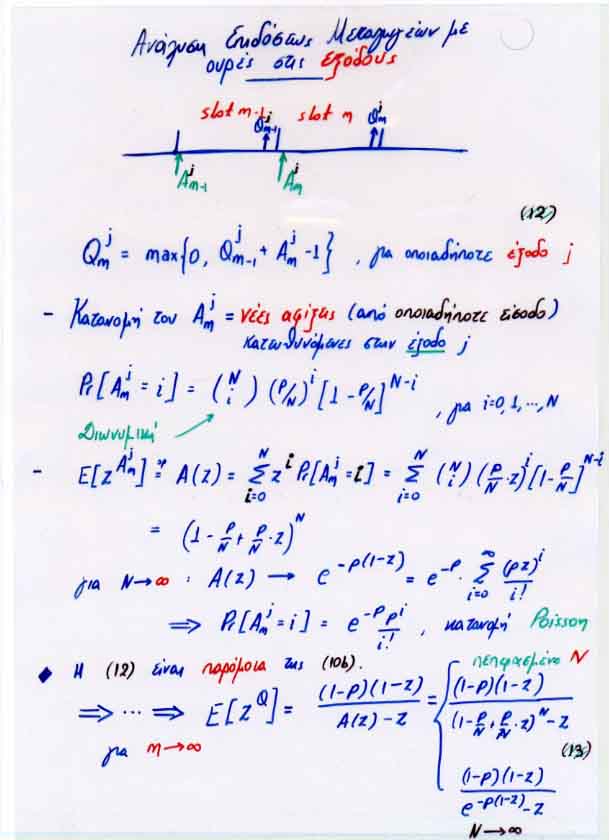 Ανάλυση Επιδόσεως Μεταγωγέων με
ουρές στις εξόδους
slot m-1 Q^j_{m-1} slot m Q^j_m
A^j_{m-1} A^j_m
(12)
Q^j_m = max{0, Q^j_{m-1} + A^j_m - 1} , για οποιαδήποτε έξοδο j
- Κατανομή του A^j_m = νέες αφίξεις (από οποιαδήποτε είσοδο)
κατευθυνόμενες στην έξοδο j
Pr[A^j_m = i] = (N i) (P/N)^i [1 - P/N]^{N-i} , για i=0,1,...,N
Διωνυμική
- E[z^{A^j_m}] ≜ A(z) = Σ_{i=0}^{N} z^i Pr[A^j_m = i] = Σ_{i=0}^{N} (N i) (P/N · z)^i [1 - P/N]^{N-i}
= (1 - P/N + P/N · z)^N
για N→∞ : A(z) → e^{-p(1-z)} = e^{-p} · Σ_{i=0}^{∞} (pz)^i / i!
⇒ Pr[A^j_m = i] = e^{-p} p^i / i! , κατανομή Poisson
◆ Η (12) είναι παρόμοια της (10b). πεπερασμένο N
⇒ ··· ⇒ E[z^Q] = (1-p)(1-z) / A(z) - z = { (1-p)(1-z) / (1 - P/N + P/N · z)^N - z
για m→∞ (13)
(1-p)(1-z) / e^{-p(1-z)} - z
N→∞